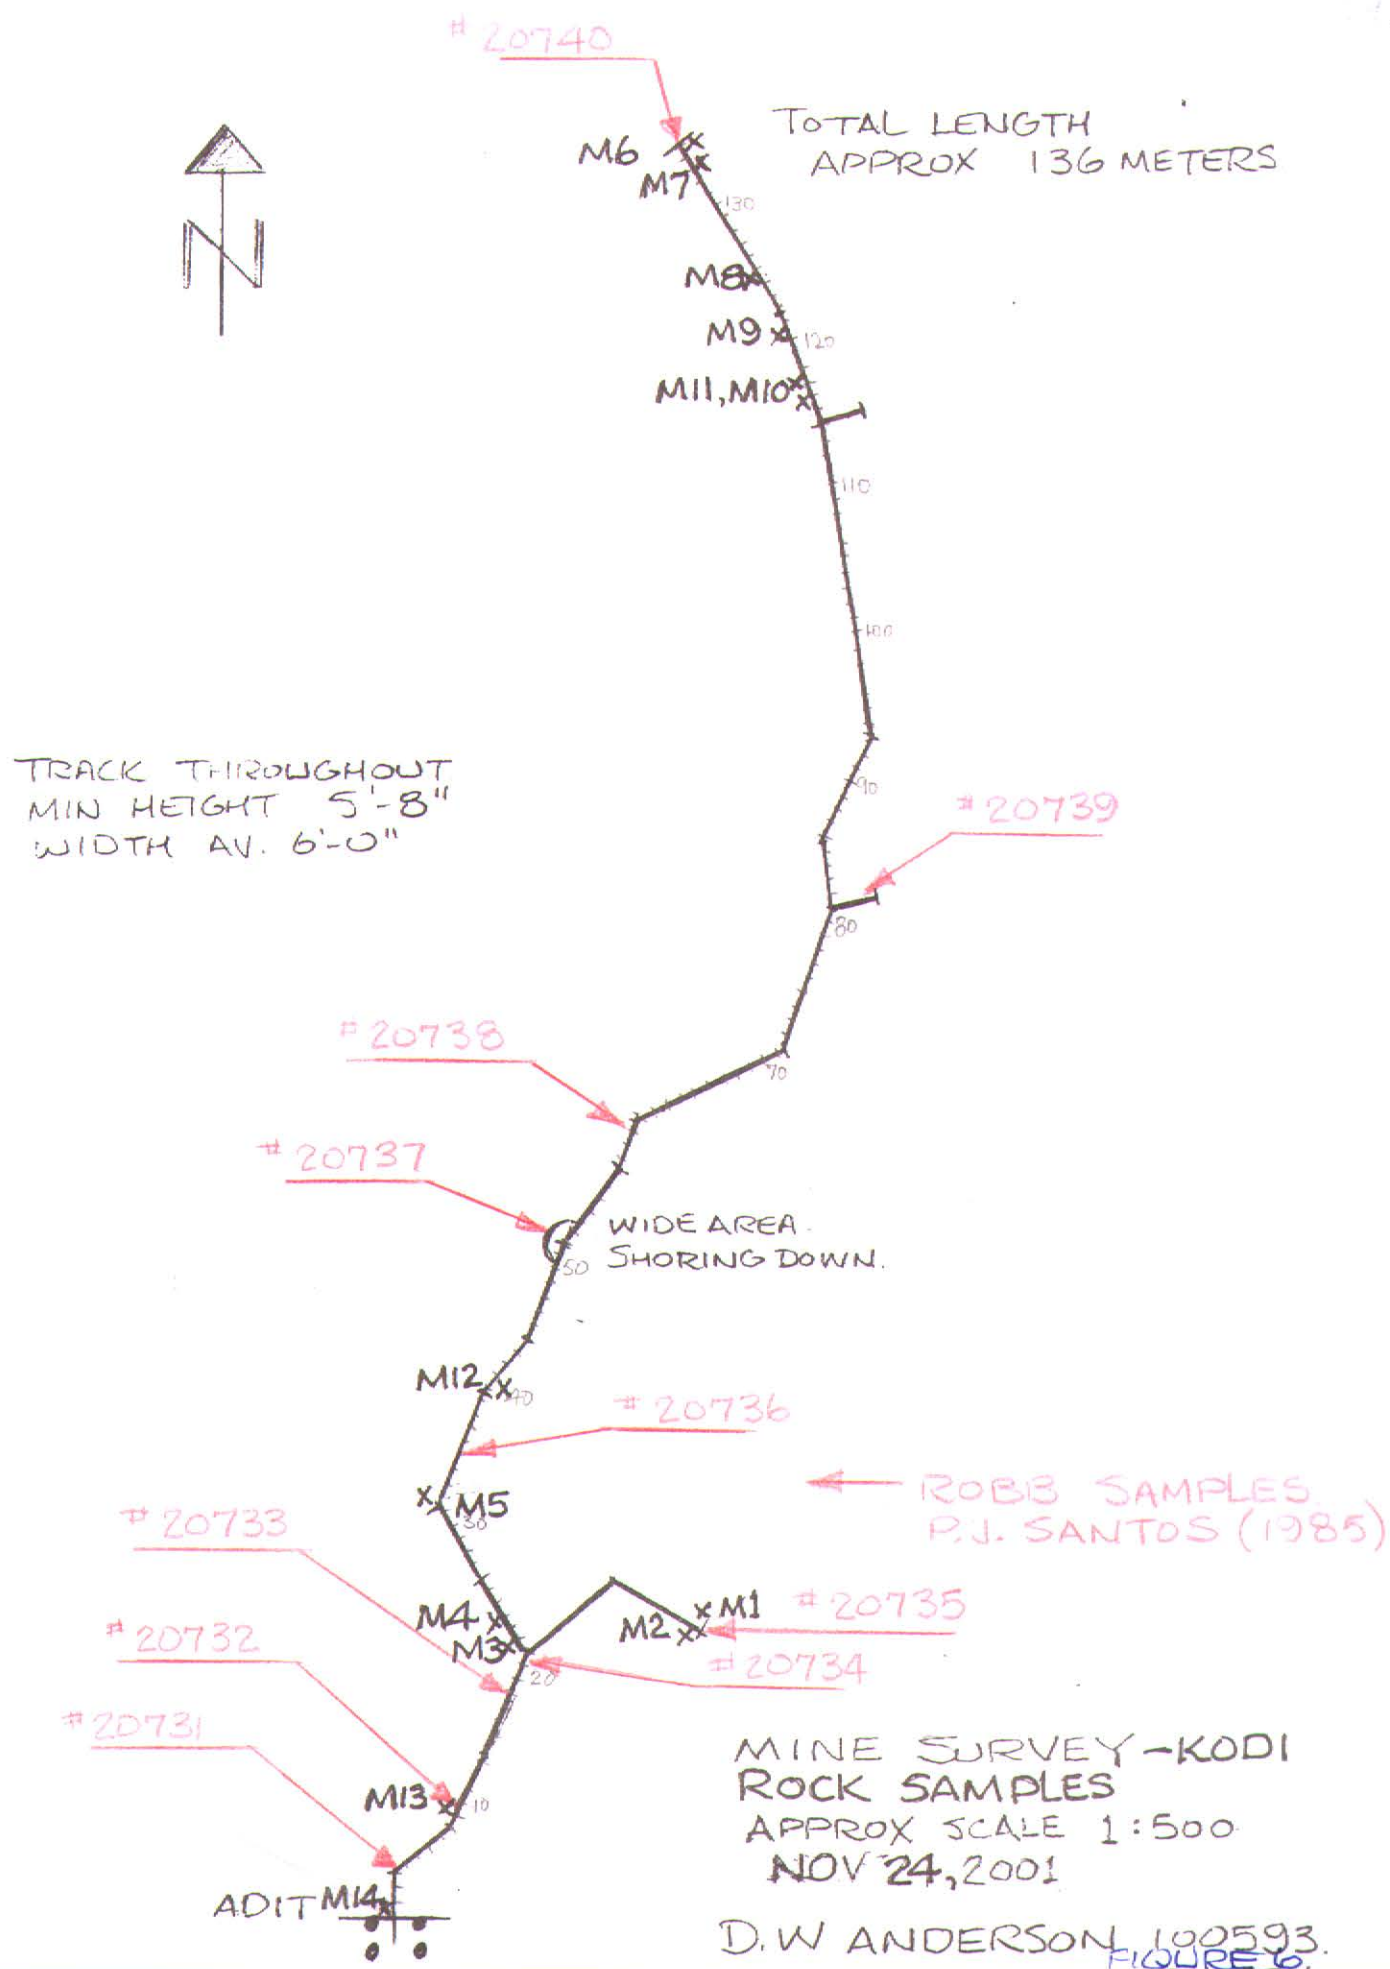 # 20740
TOTAL LENGTH
APPROX 136 METERS
M6
M7
130
N
M8
M9
120
M11, M10
110
100
TRACK THROUGHOUT
MIN HEIGHT 5'-8"
WIDTH AV. 6'-0"
90
# 20739
80
# 20738
70
# 20737
WIDE AREA.
SHORING DOWN.
50
M12
40
# 20736
M5
30
ROBB SAMPLES
P.J. SANTOS (1985)
# 20733
M4
M3
M1
M2
# 20735
# 20732
# 20734
20
# 20731
M13
10
MINE SURVEY - KODI
ROCK SAMPLES
APPROX SCALE 1:500
NOV 24, 2001
ADIT M14
D.W ANDERSON 100593.
FIGURE 6.